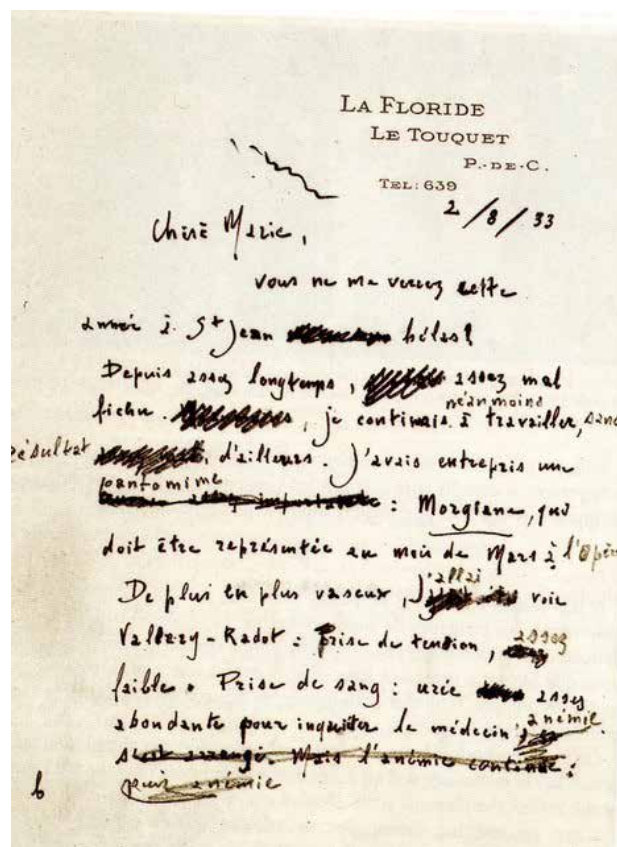 LA FLORIDE
LE TOUQUET
P.-DE-C.
TEL: 639
2/8/33
Chère Marie,
vous ne me verrez cette
année à St Jean hélas!
Depuis assez longtemps, assez mal
fichu. , je continuais néanmoins à travailler, sans
résultat , d'ailleurs. J'avais entrepris une
pantomime
importante : Morgiane, qui
doit être représentée au mois de Mars à l'Opéra
De plus en plus vaseux, j'allai voir
Vallery-Radot : Prise de tension, assez
faible. Prise de sang : urée assez
abondante pour inquiéter le médecin, anémie.
s'est arrangé. Mais l'anémie continue :
puis anémie